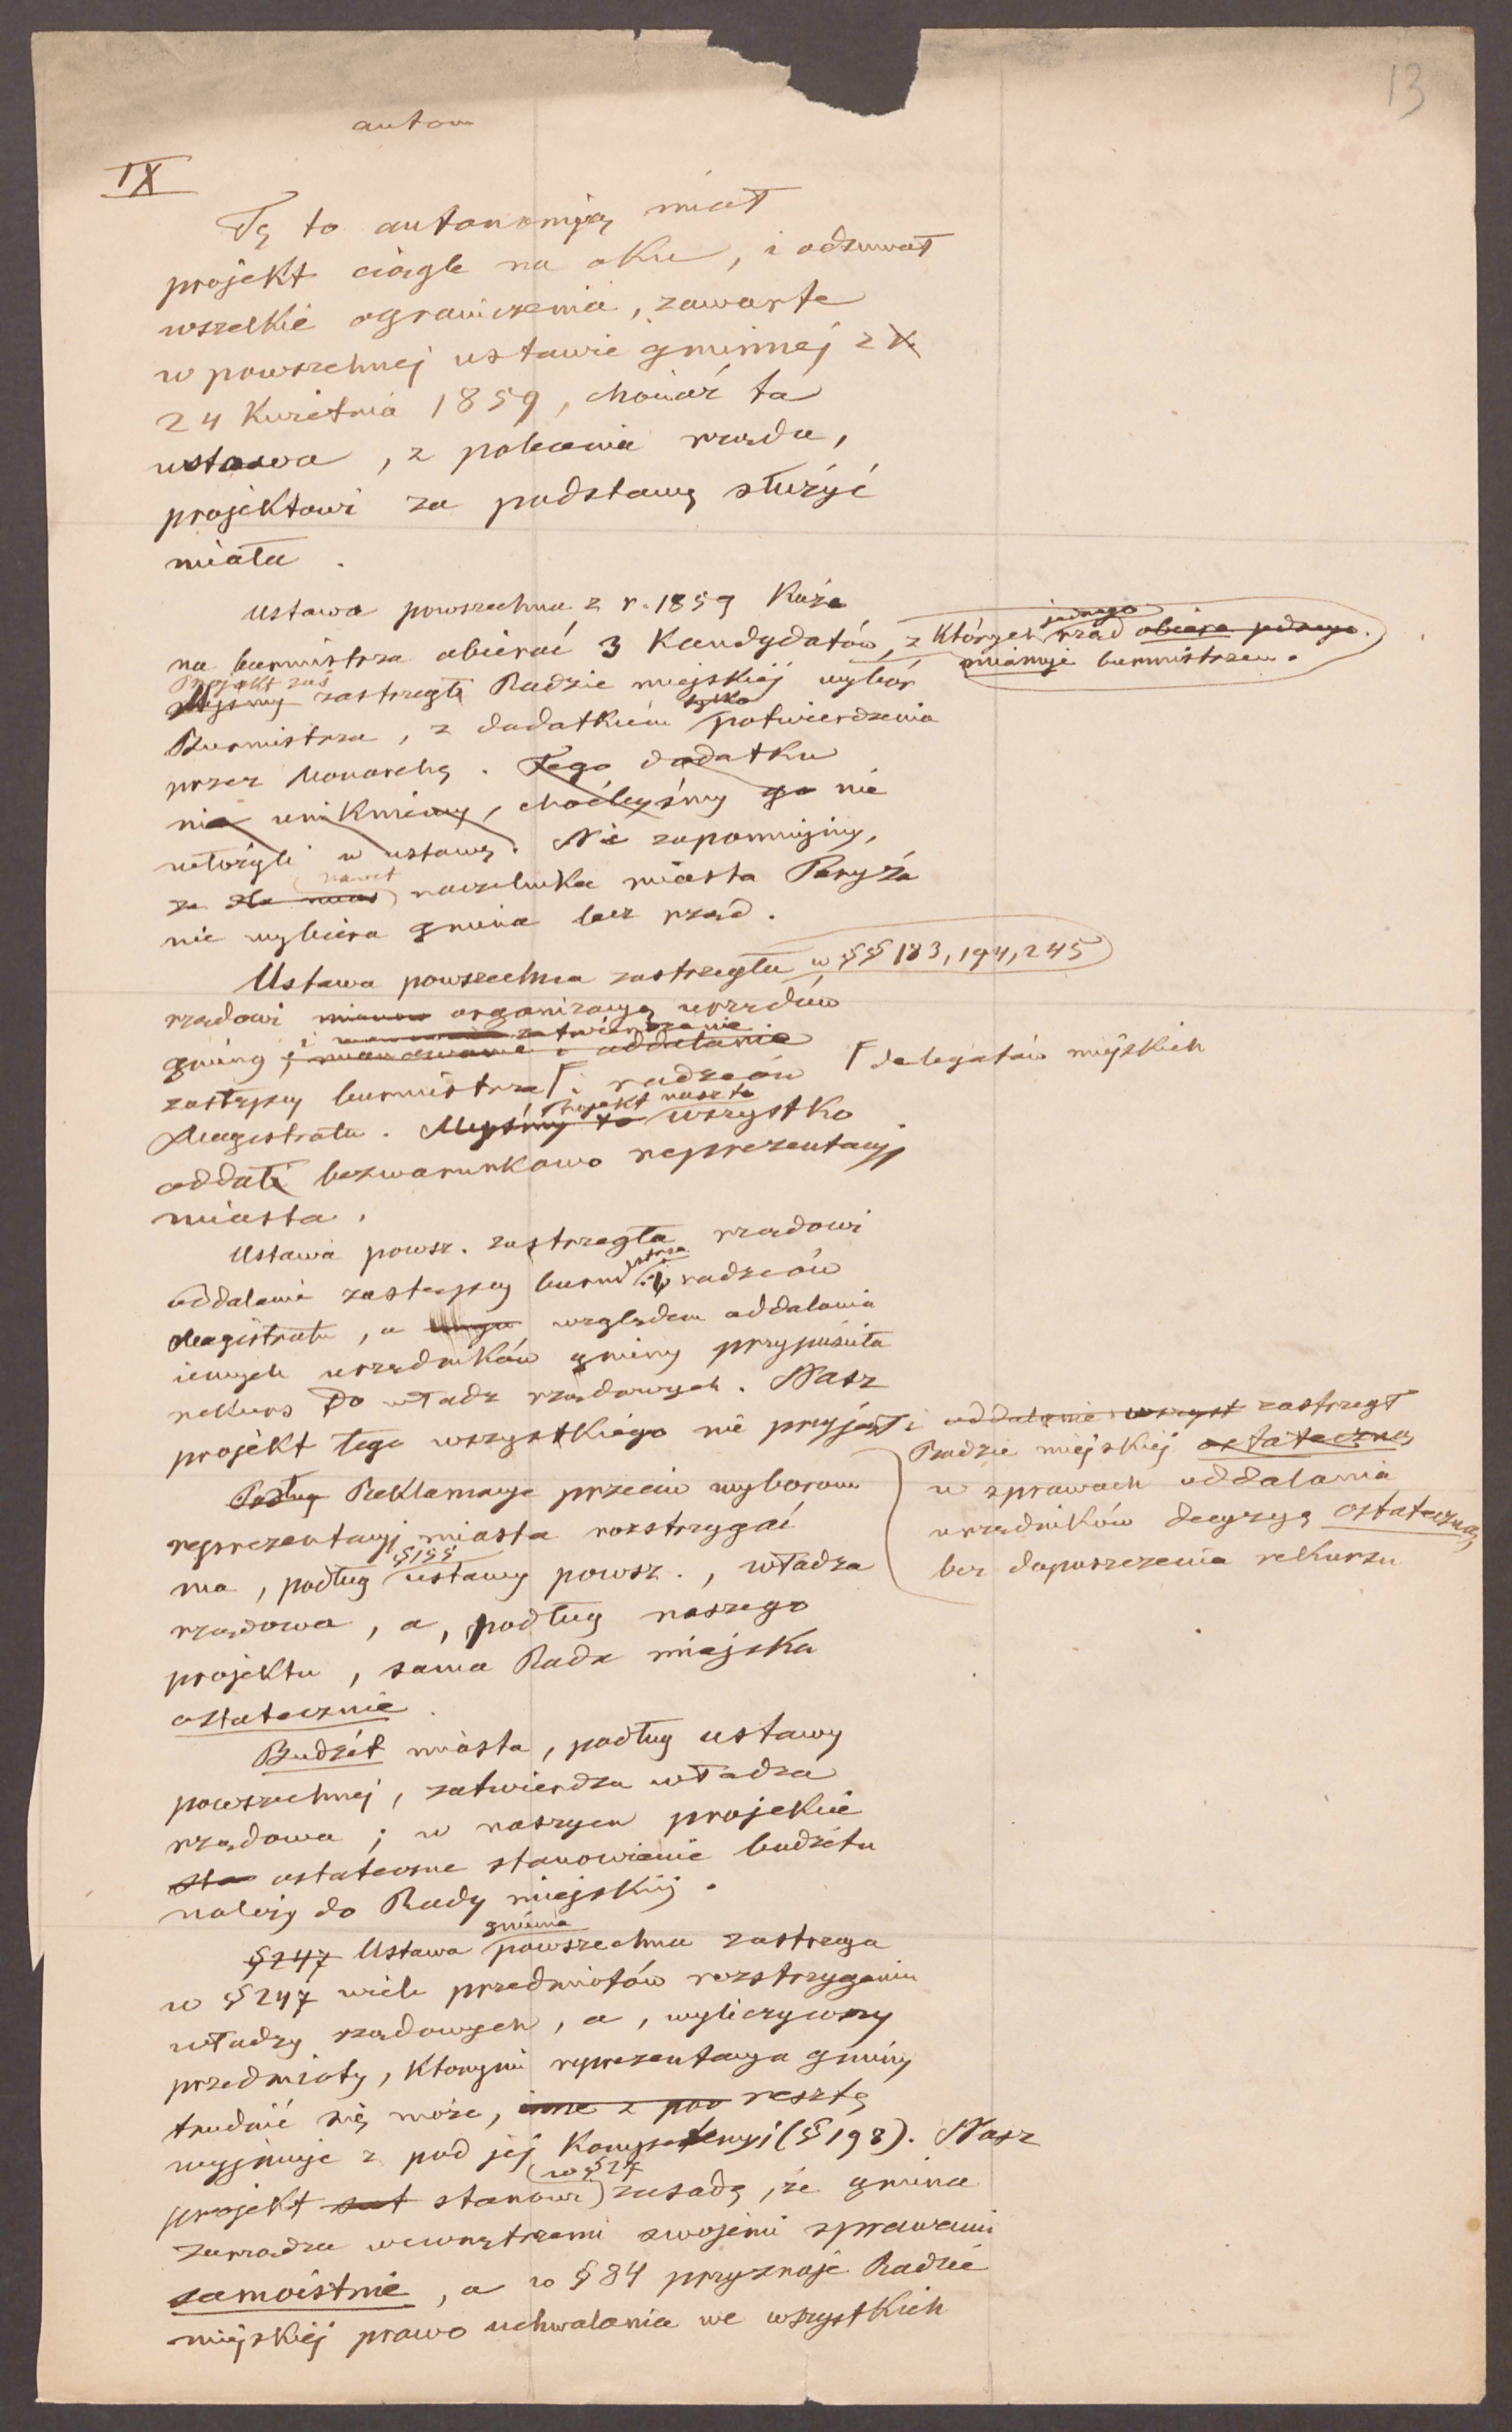 13
autom
IX
Tę to autonomiją miał
projekt ciągle na oku, i odsuwał
wszelkie ograniczenia, zawarte
w powszechnej ustawie gminnej z
24 Kwietnia 1859, chociaż ta
ustawa, z polecenia rządu,
projektowi za podstawę służyć
miała.
Ustawa powszechna z r. 1859 Każe
na burmistrza obierać 3 Kandydatów, z Których rząd jednego obiera jednego.
mianuje burmistrzem.
Projekt zaś
Myśmy zastrzegł Radzie miejskiej wybór
Burmistrza, z dodatkiem tylko potwierdzenia
przez Monarchę. Tego dodatku
nie unikniemy, choćbyśmy go nie
włożyli w ustawę. Nie zapomnijmy,
że dla nas nawet naczelnika miasta Paryża
nie wybiera gmina lecz rząd.
Ustawa powszechna zastrzegła w §§ 183, 194, 245
rządowi organizacyą urzędów
gminy, i zatwierdzanie mianowanie i oddalanie
zastępcy burmistrza ⌈ i radzców ⌈ delegatów miejskich
Magistratu. Myśmy to Projekt nasz to wszystko
oddał bezwarunkowo reprezentacyj
miasta.
Ustawa powsz. zastrzegła rządowi
oddalanie zastępcy burmistrza i radzców
Magistratu, a względem oddalania
innych urzędników gminy przypuściła
rekurs do władz rządowych. Nasz
projekt tego wszystkiego nie przyjął i oddalanie wszyst zastrzegł
Radzie miejskiej ostateczną
w sprawach oddalania
urzędników decyzyą ostateczną
bez dopuszczenia rekursu
Podług Reklamacye przeciw wyborom
reprezentacyj miasta rozstrzygać
ma, podług §155 ustawy powsz., władza
rządowa, a, podług naszego
projektu, sama Rada miejska
ostatecznie.
Budżet miasta, podług ustawy
powszechnej, zatwierdza władza
rządowa; w naszym projekcie
sta ostateczne stanowienie budżetu
należy do Rady miejskiej.
§247 Ustawa gminna powszechna zastrzega
w §247 wiele przedmiotów rozstrzyganiu
władzy rządowych, a, wyliczywszy
przedmioty, Ktorymi reprezentacya gminy
trudnić się może, inne z pod resztę
wyjmuje z pod jej Kompetencyi (§198). Nasz
projekt stanowi w §27 zasadę, że gmina
zarządza wewnętrznemi swojemi sprawami
samoistnie, a w §84 przyznaje Radzie
miejskiej prawo uchwalania we wszystkich